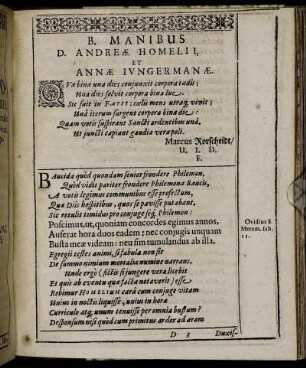 B. MANIBUS
D. ANDREÆ HOMELII,
ET
ANNÆ IVNGERMANÆ.
QVæ bina una dies conjunxit corpora tædis;
Una dies solvit corpora bina luce.
Sic fuit in FATIS: cœli mens utraq; vivit;
Unà iterum surgent corpora bina die:
Quam votis suspirant Sancti ardentibus unà,
Ut juncti capiant gaudia vera poli.
Marcus Rorscheidt/
U. I. D.
F.
BAucida quòd quondam senior frondere Philemon,
Quòd vidit pariter frondere Philemona Baucis,
A votis legimus communibus esse profectum,
Quæ Diis hospitibus, quos se pavisse putabant,
Sic retulit timidus pro conjuge seq; Philemon:
Poscimus, ut, quoniam concordes egimus annos,
Auferat hora duos eadem: nec conjugis unquam
Busta meæ videam: neu sim tumulandus ab illa.
Ovidius 8.
Metam. fab.
11.
Egregii testes animi, si fabula non sit
De summo nimium mortalia numine narrans.
Unde ergò (fictis si jungere vera licebit
Et quis ab eventu quæ facta notaverit) esse
Rebimur HOMELIUM carâ cum conjuge vitam
Unius in noctis liquisse, unius in hora
Curriculo atq; unum tenuisse per omnia bustum?
Desponsum nisi quòd cum primitus ardor ad aram
D 3
Duxis-